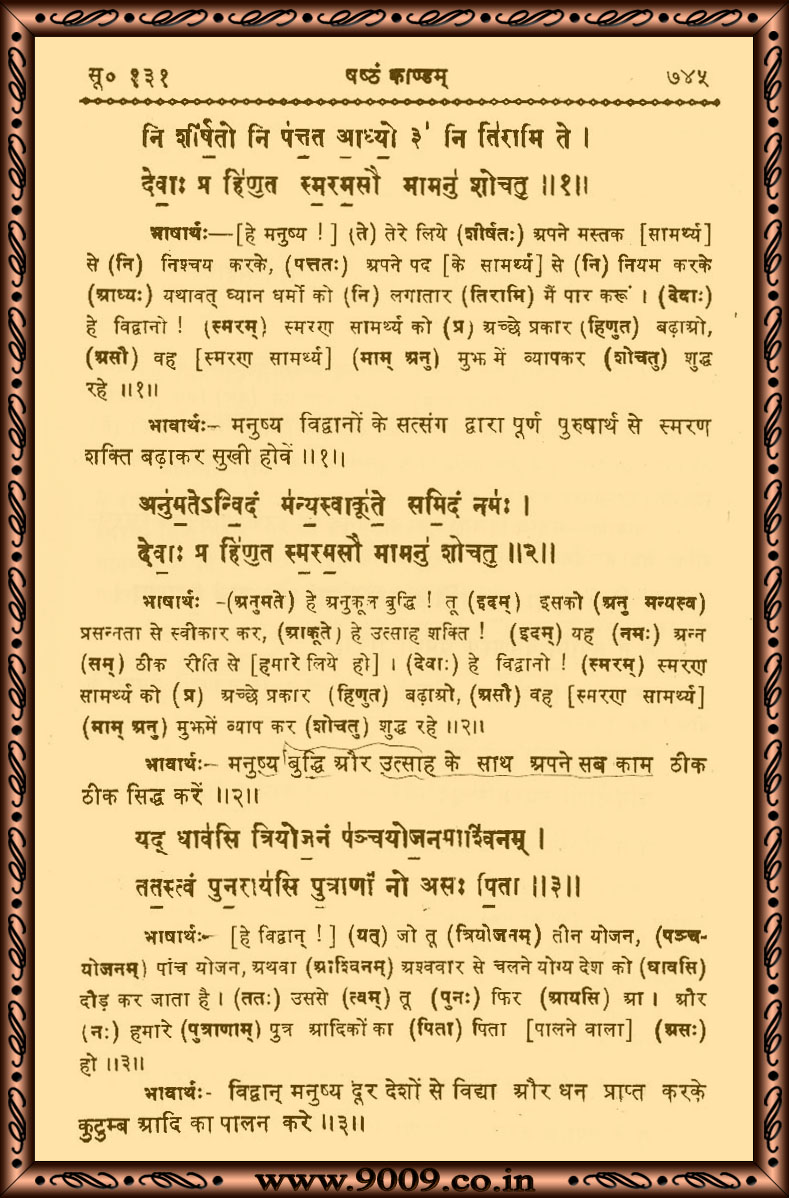 सू० १३१ षष्ठं काण्डम् ७४५
नि शी॑र्ष॒तो नि प॑त्त॒त आ॒ध्यो॒ ३॑ नि ति॑रामि ते ।
देवा॒ः प्र हि॑णुत स्म॒रम॒सौ मामनु॑ शोचतु ॥१॥
भाषार्थः—[हे मनुष्य ! ] (ते) तेरे लिये (शीर्षतः) अपने मस्तक [सामर्थ्य]
से (नि) निश्चय करके, (पत्ततः) अपने पद [के सामर्थ्य] से (नि) नियम करके
(आध्यः) यथावत् ध्यान धर्मो को (नि) लगातार (तिरामि) मैं पार करूं । (देवाः)
हे विद्वानो ! (स्मरम्) स्मरण सामर्थ्य को (प्र) अच्छे प्रकार (हिणुत) बढ़ाओ,
(असौ) वह [स्मरण सामर्थ्य] (माम् अनु) मुझ में व्यापकर (शोचतु) शुद्ध
रहे ॥१॥
भावार्थः– मनुष्य विद्वानों के सत्संग द्वारा पूर्ण पुरुषार्थ से स्मरण
शक्ति बढ़ाकर सुखी होवें ॥१॥
अनु॑म॒तेऽन्वि॒दं म॑न्य॒स्वाकू॑ते॒ समि॒दं नमः॑ ।
देवा॒ः प्र हि॑णुत स्म॒रम॒सौ मामनु॑ शोचतु ॥२॥
भाषार्थः -(अनुमते) हे अनुकूल बुद्धि ! तू (इदम्) इसको (अनु मन्यस्व)
प्रसन्नता से स्वीकार कर, (आकूते) हे उत्साह शक्ति ! (इदम्) यह (नमः) अन्न
(सम्) ठीक रीति से [हमारे लिये हो] । (देवाः) हे विद्वानो ! (स्मरम्) स्मरण
सामर्थ्य को (प्र) अच्छे प्रकार (हिणुत) बढ़ाओ, (असौ) वह [स्मरण सामर्थ्य]
(माम् अनु) मुझमें व्याप कर (शोचतु) शुद्ध रहे ॥२॥
भावार्थः– मनुष्य बुद्धि और उत्साह के साथ अपने सब काम ठीक
ठीक सिद्ध करें ॥२॥
यद् धाव॑सि त्रियोज॒नं प॑ञ्चयोज॒नमाश्वि॑नम् ।
तत॒स्त्वं पुन॒राय॑सि पु॒त्राणां॑ नो असः पि॒ता ॥३॥
भाषार्थः– [हे विद्वान् ! ] (यत्) जो तू (त्रियोजनम्) तीन योजन, (पञ्च-
योजनम्) पांच योजन, अथवा (आश्विनम्) अश्ववार से चलने योग्य देश को (धावसि)
दौड़ कर जाता है । (ततः) उससे (त्वम्) तू (पुनः) फिर (आयसि) आ । और
(नः) हमारे (पुत्राणाम्) पुत्र आदिकों का (पिता) पिता [पालने वाला] (असः)
हो ॥३॥
भावार्थः- विद्वान् मनुष्य दूर देशों से विद्या और धन प्राप्त करके
कुटुम्ब आदि का पालन करे ॥३॥
www.9009.co.in